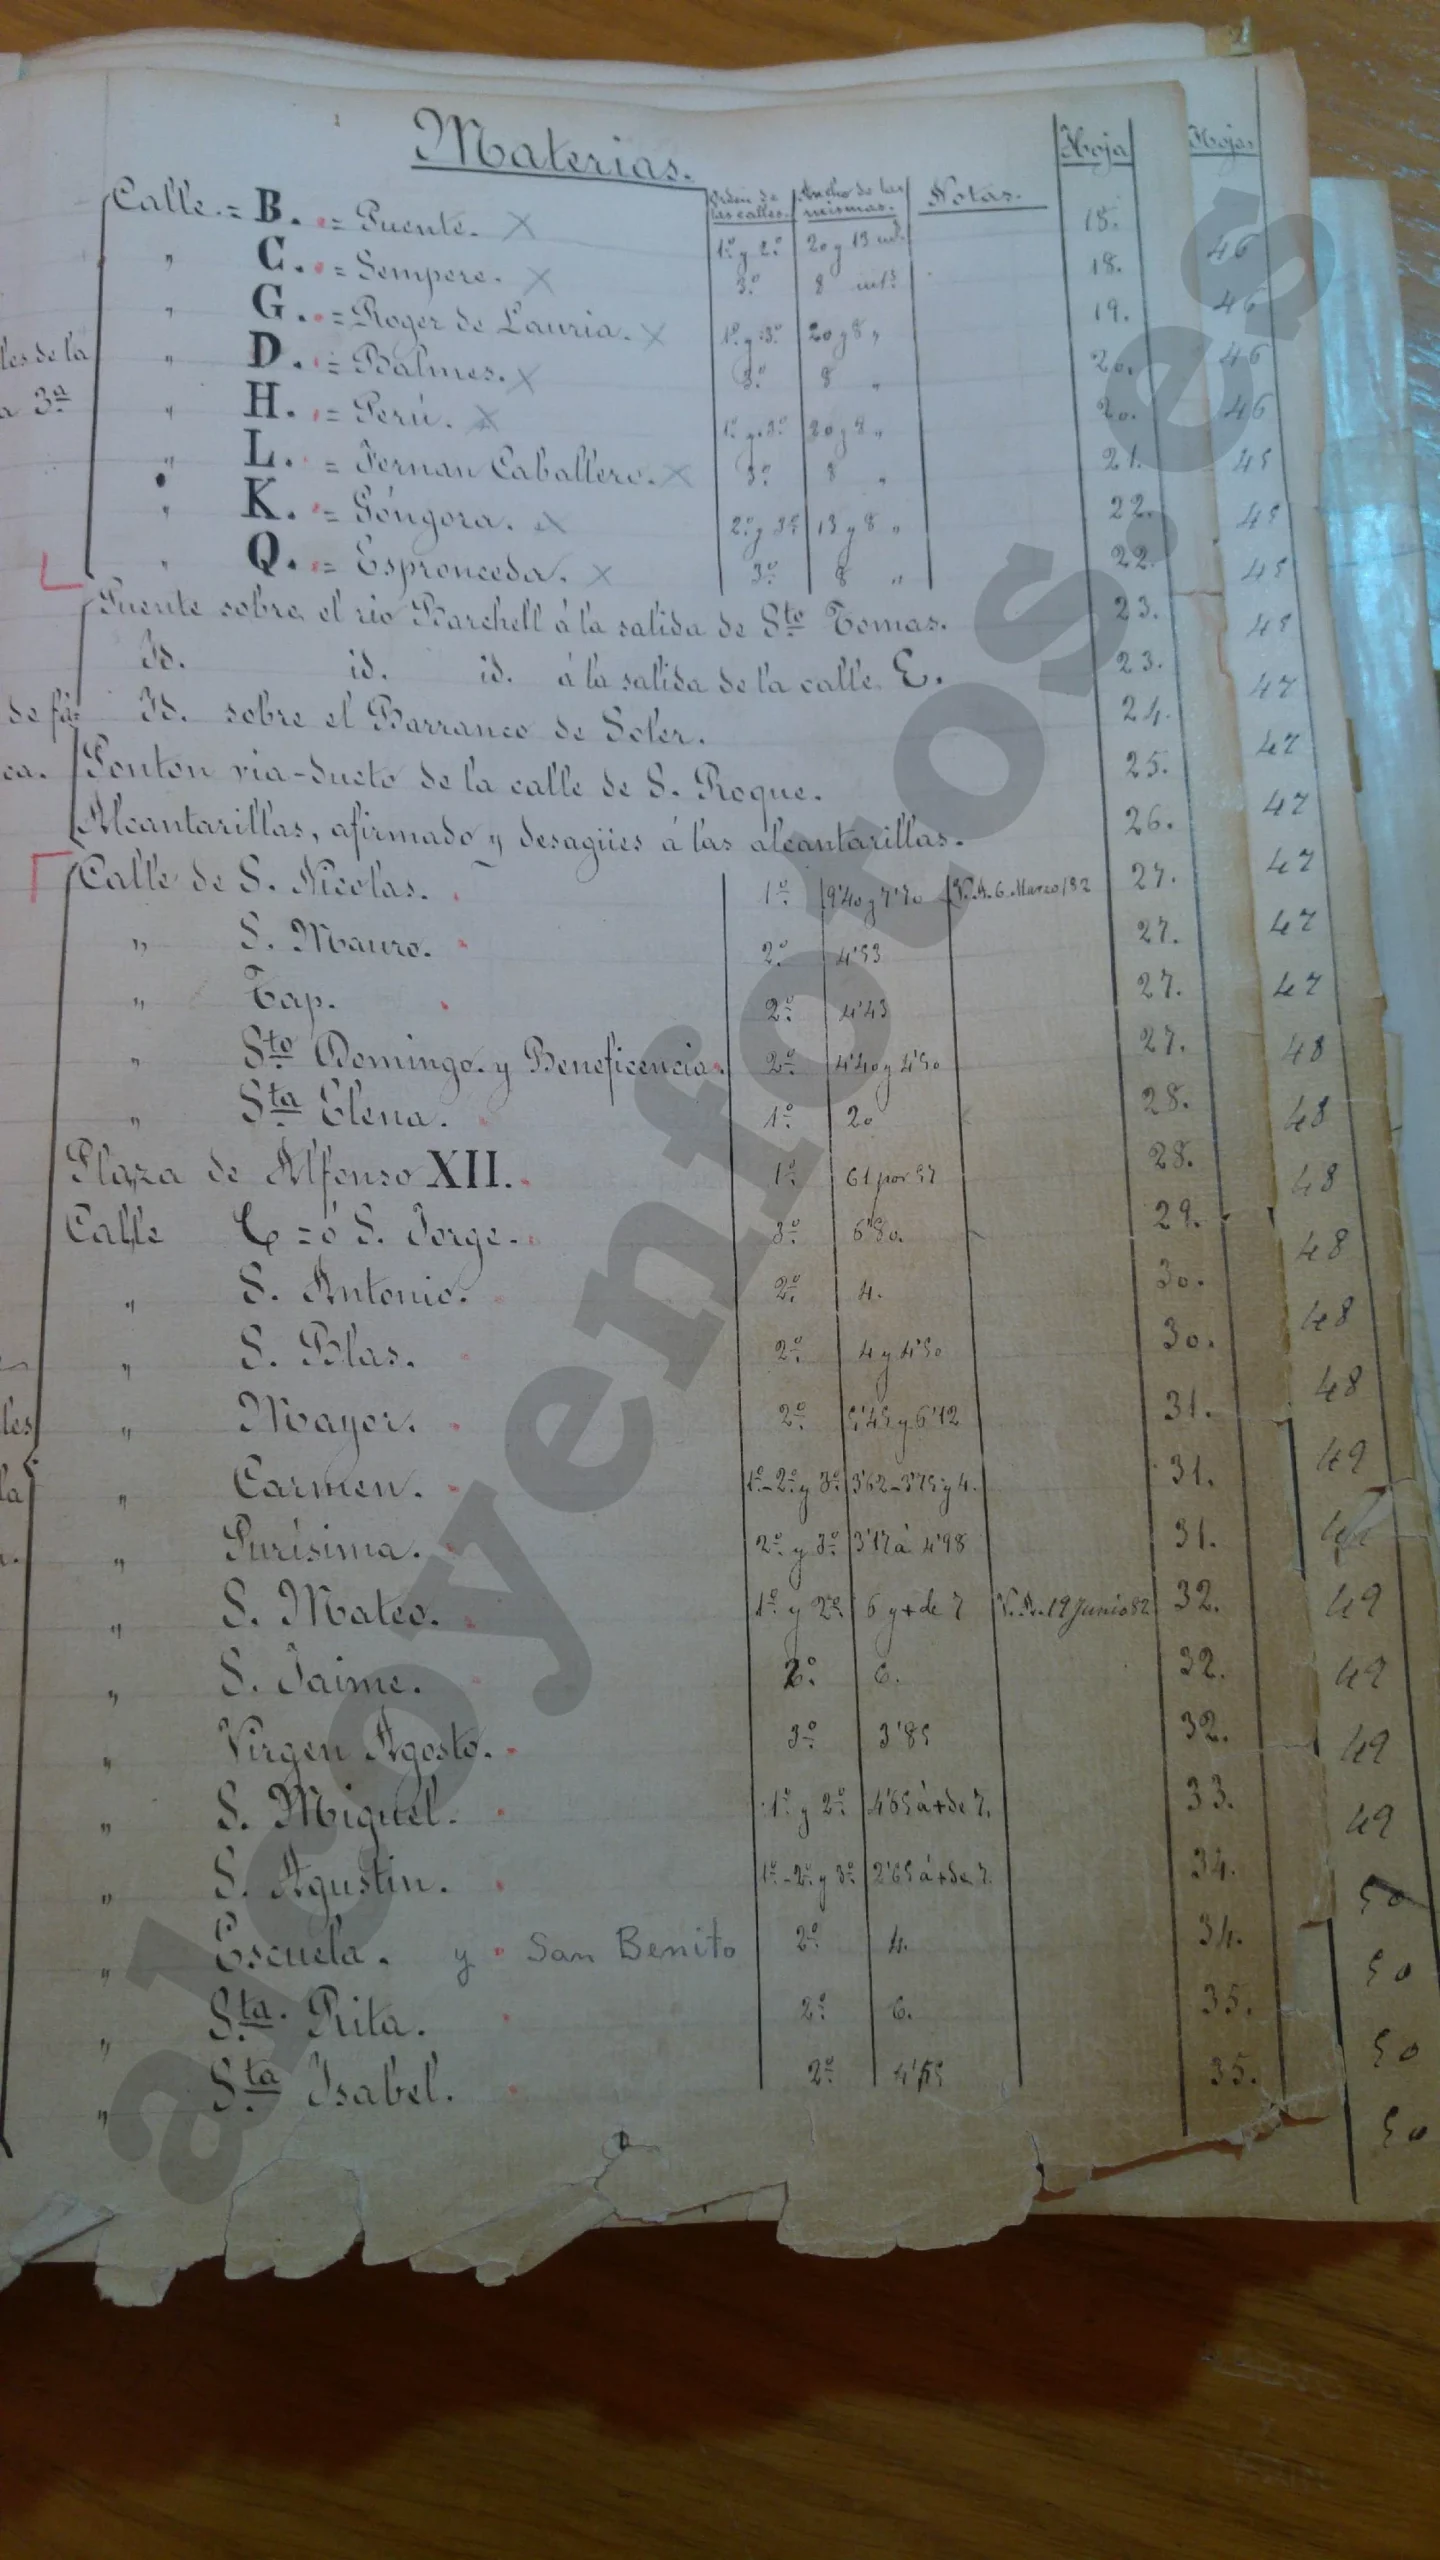 Materias.
Orden de las calles. Ancho de las mismas. Notas. Hoja Hojas
Calle = B. = Puente. X 1º y 2º 20 y 13 mts 18. 46
" C. = Sempere. X 3º 8 mts 18. 46
" G. = Roger de Lauria. X 1º y 3º 20 y 8 " 19. 46
les de la " D. = Balmes. X 3º 8 " 20. 46
a 3ª " H. = Perú. X 1º y 3º 20 y 8 " 20. 45
" L. = Fernan Caballero. X 3º 8 " 21. 45
" K. = Góngora. X 2º y 3º 13 y 8 " 22. 45
" Q. = Espronceda. X 3º 8 " 22. 45
Puente sobre el rio Barchell á la salida de Sto Tomas. 23. 47
Id. id. id. á la salida de la calle E. 23. 47
Id. sobre el Barranco de Soler. 24. 47
ca. Ponton via-ducto de la calle de S. Roque. 25. 47
Alcantarillas, afirmado y desagües á las alcantarillas. 26. 47
Calle de S. Nicolas. 1º 9'40 y 7'70 V. A. 6 Marzo/82 27. 47
" S. Mauro. 2º 4'53 27. 48
" Tap. 2º 4'43 27. 48
" Sto Domingo y Beneficencia. 2º 4'40 y 4'50 27. 48
" Sta Elena. 1º 20 28. 48
Plaza de Alfonso XII. 1º 61 por 57 28. 48
Calle C = ó S. Jorge. 3º 6'80. 29. 48
" S. Antonio. 2º 4. 30. 49
" S. Blas. 2º 4 y 4'50 30.
les " Mayor. 2º 5'45 y 6'12 31. 49
la " Carmen. 1º - 2º y 3º 3'62 - 3'75 y 4. 31. 49
" Purísima. 2º y 3º 3'17 á 4'98 31. 49
" S. Mateo. 1º y 2º 6 y + de 7 V. A. 19 Junio 82 32. 49
" S. Jaime. 2º 6. 32. 50
" Virgen Agosto. 3º 3'85 32. 50
" S. Miguel. 1º y 2º 4'65 á + de 7. 33. 50
" S. Agustin. 1º - 2º y 3º 2'65 á + de 7. 34. 50
" Escuela. y San Benito 2º 4. 34.
" Sta. Rita. 2º 6. 35.
" Sta Isabel. 2º 35.
alcoyenfotos.es